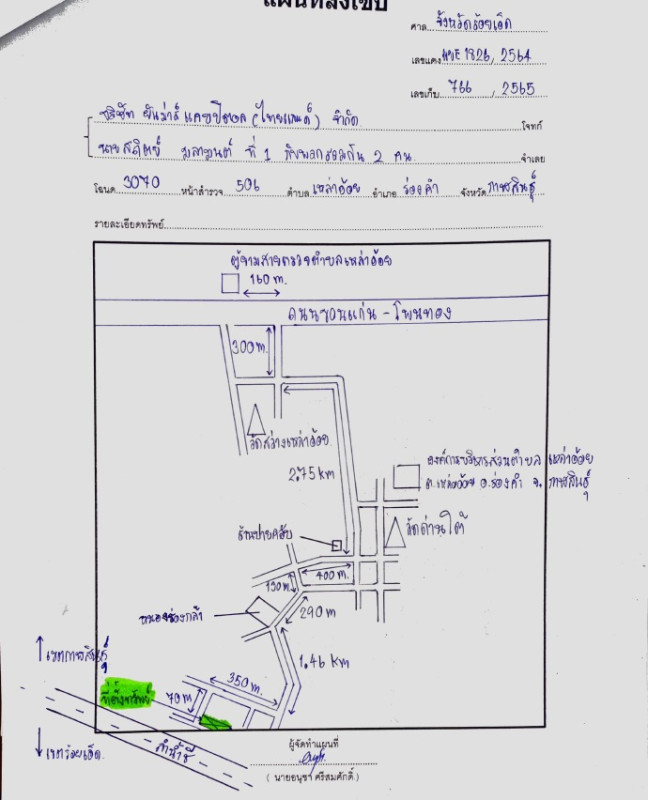 แผนที่สังเขป
ศาล จังหวัดร้อยเอ็ด
เลขแดง ผบE 1826, 2564
เลขเก็บ 766 , 2565
บริษัท ยันม่าร์ แคปปิตอล (ไทยแลนด์) จำกัด โจทก์
นายสถิตย์ ที่ 1 กับพวกรวมกัน 2 คน จำเลย
โฉนด 3070 หน้าสำรวจ 506 ตำบล เหล่าอ้อย อำเภอ ร่องคำ จังหวัด กาฬสินธุ์
รายละเอียดทรัพย์
ตู้ยามสายตรวจตำบลเหล่าอ้อย
160 m.
ถนนขอนแก่น - โพนทอง
300 m.
วัดสว่างเหล่าอ้อย
2.75 km
องค์การบริหารส่วนตำบล เหล่าอ้อย
ต.เหล่าอ้อย อ.ร่องคำ จ.กาฬสินธุ์
วัดด่านใต้
400 m.
290 m
หนองช่องกล้า
1.46 km
เขตกาฬสินธุ์
350 m.
ที่ตั้งทรัพย์
70 m
ลำน้ำชี
เขตร้อยเอ็ด.
ผู้จัดทำแผนที่
( นายอนุชา ศรีสมศักดิ์ )